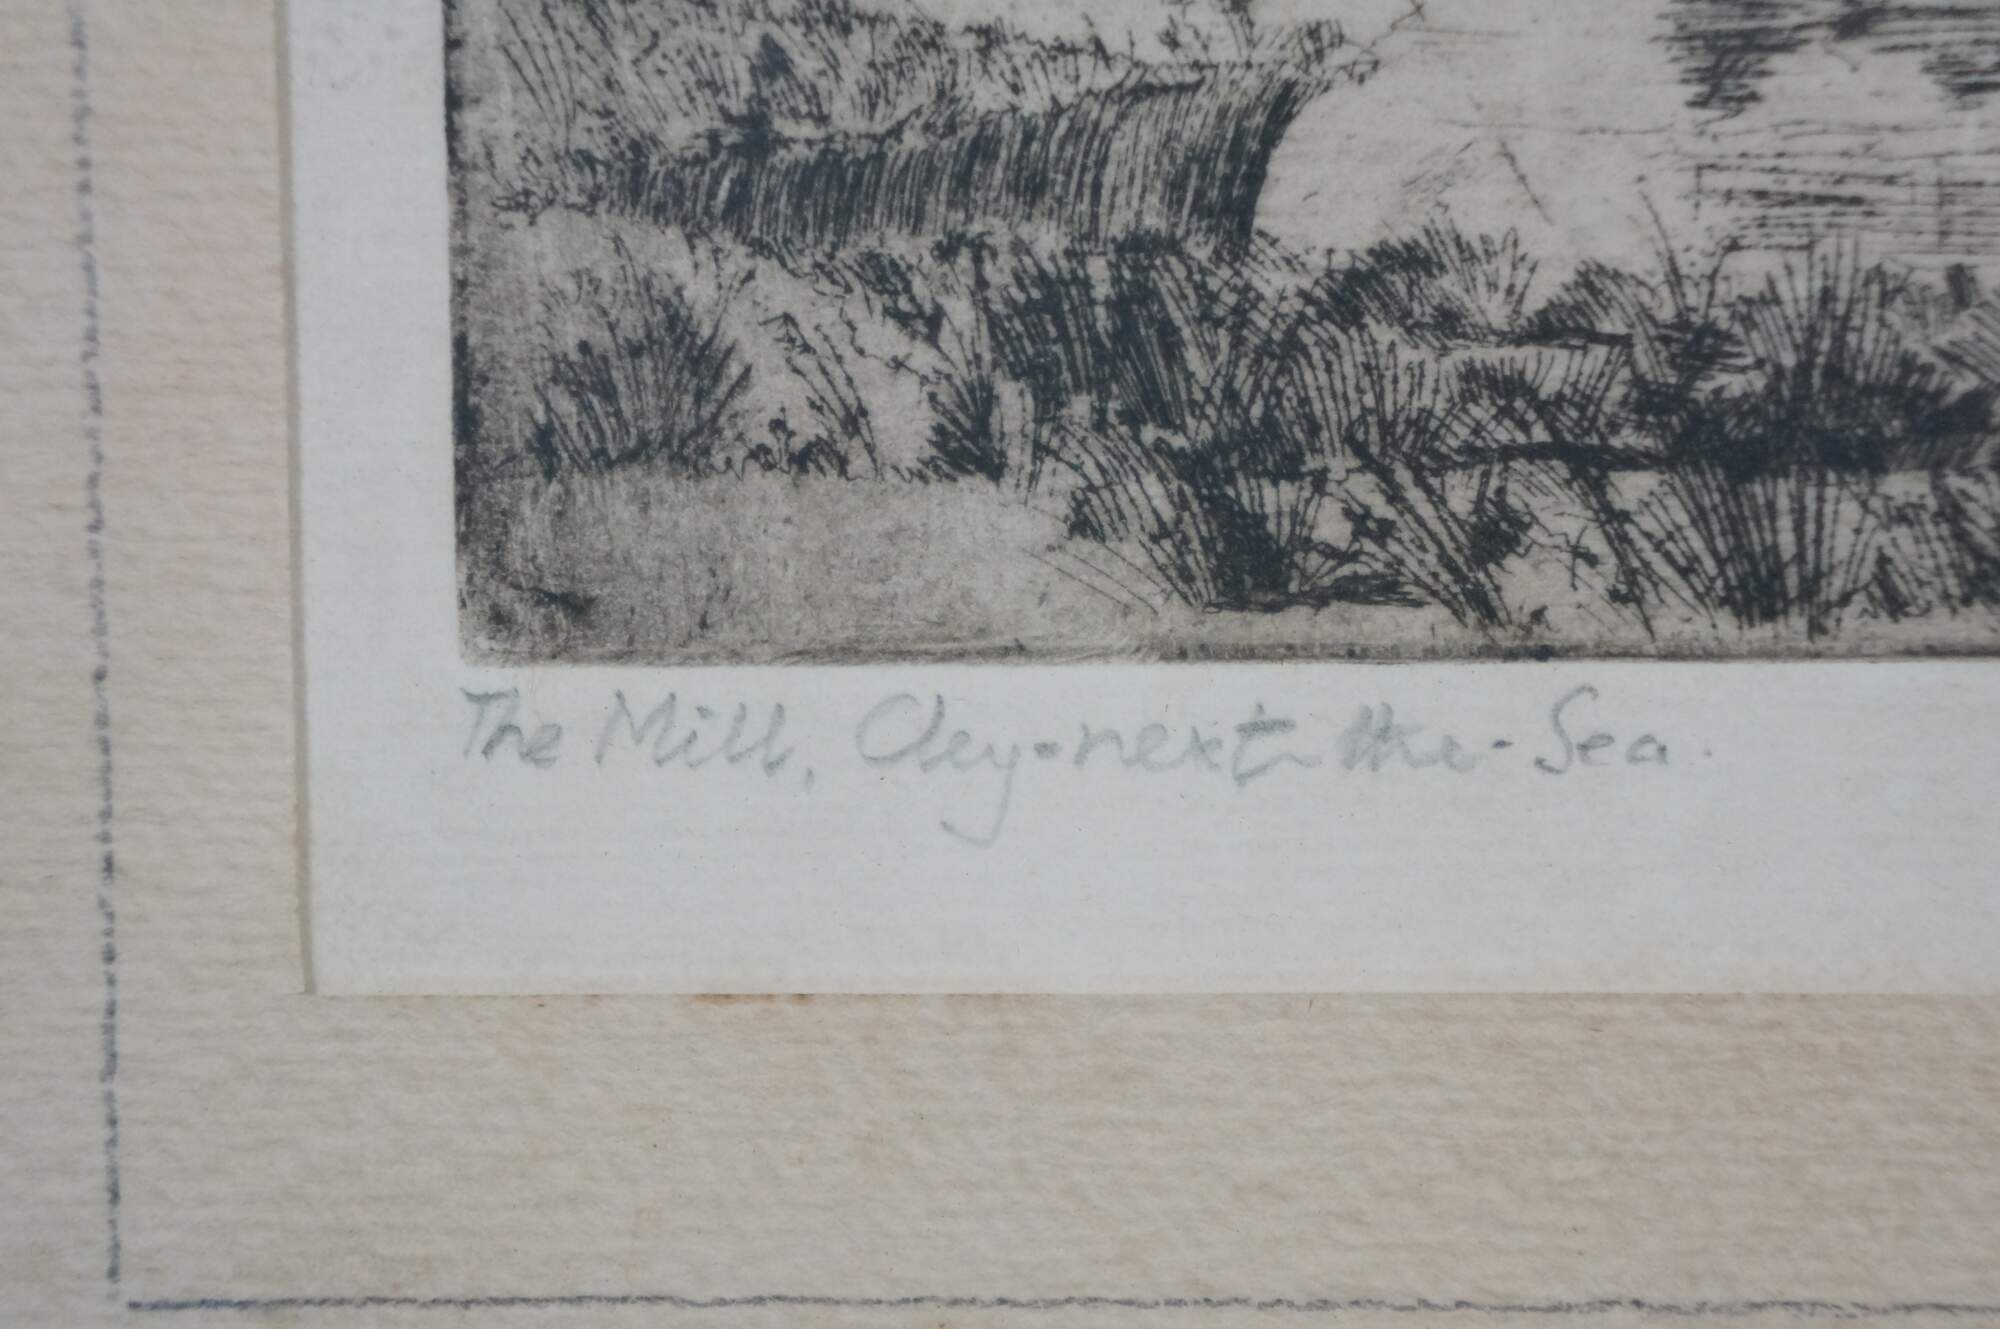 The Mill, Cley-next-the-Sea.